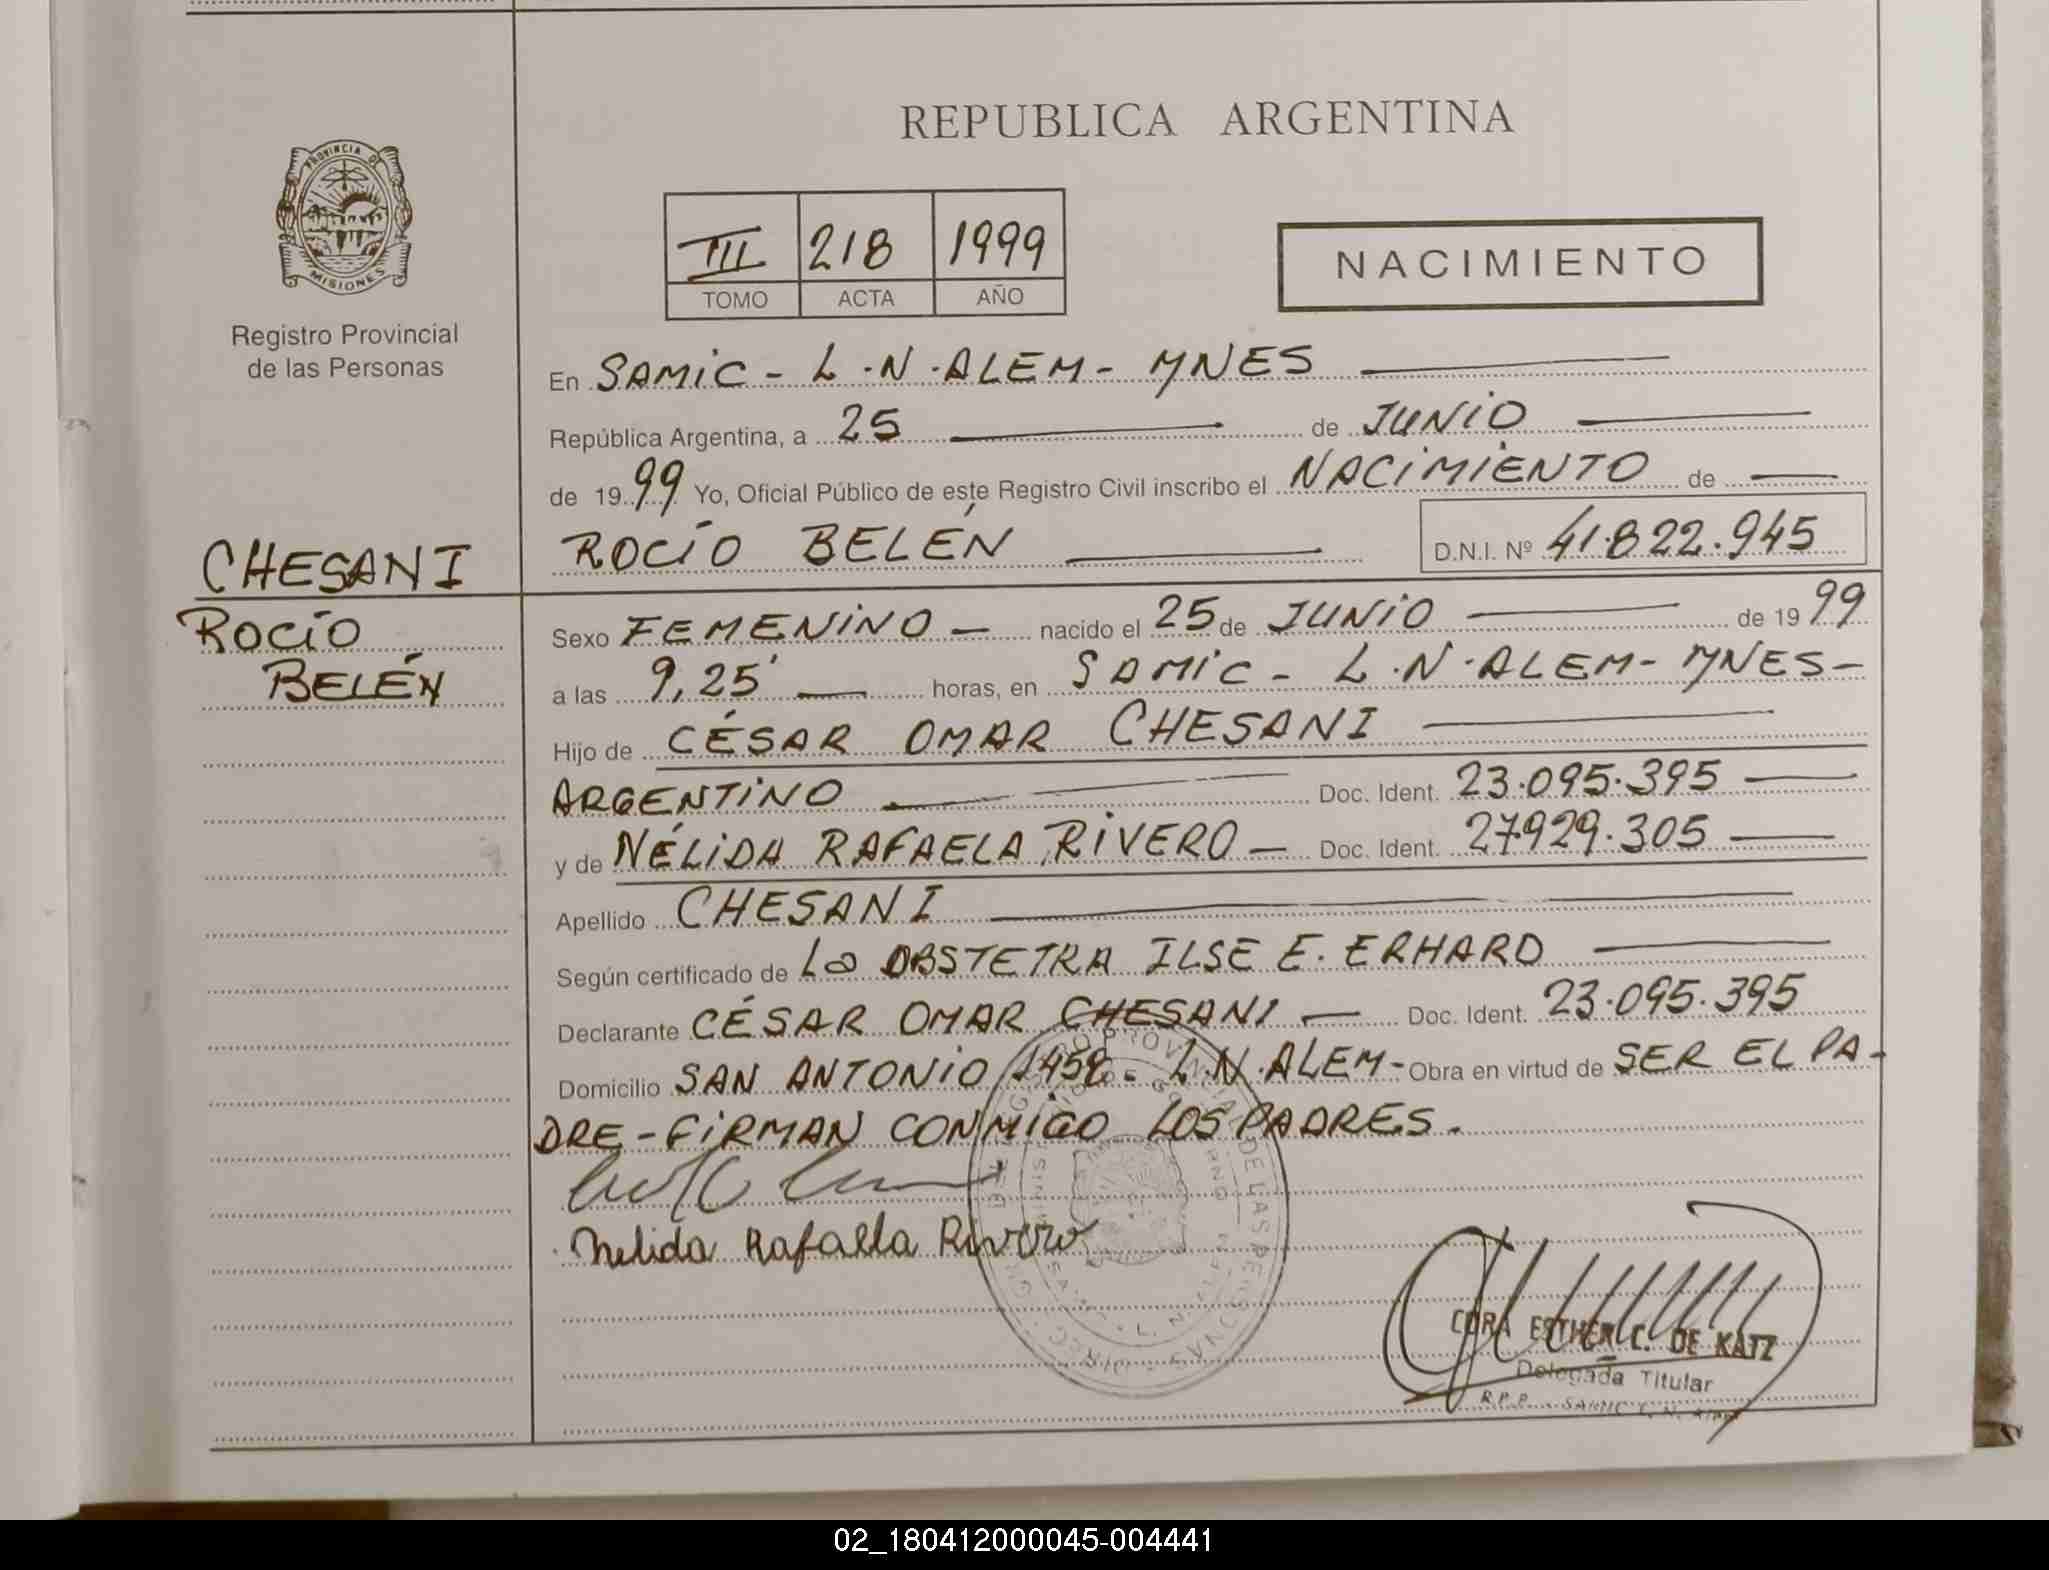 REPUBLICA ARGENTINA
PROVINCIA DE
MISIONES
Registro Provincial
de las Personas
III 218 1999
TOMO ACTA AÑO
NACIMIENTO
En SAMIC - L.N.ALEM - MNES
República Argentina, a 25 de JUNIO
de 1999 Yo, Oficial Público de este Registro Civil inscribo el NACIMIENTO de
ROCÍO BELÉN D.N.I. Nº 41.822.945
CHESANI
ROCÍO
BELÉN
Sexo FEMENINO - nacido el 25 de JUNIO de 1999
a las 9,25' horas, en SAMIC - L.N.ALEM - MNES -
Hijo de CÉSAR OMAR CHESANI
ARGENTINO Doc. Ident. 23.095.395
y de NÉLIDA RAFAELA RIVERO - Doc. Ident. 27929.305
Apellido CHESANI
Según certificado de La OBSTETRA ILSE E. ERHARD
Declarante CÉSAR OMAR CHESANI - Doc. Ident. 23.095.395
Domicilio SAN ANTONIO 1458 - L.N.ALEM - Obra en virtud de SER EL PA-
DRE - FIRMAN CONMIGO LOS PADRES.
Nelida Rafaela Rivero
CORA ESTHER C. DE KATZ
Delegada Titular
R.P.P. - SAMIC L. N. Alem
02_180412000045-004441